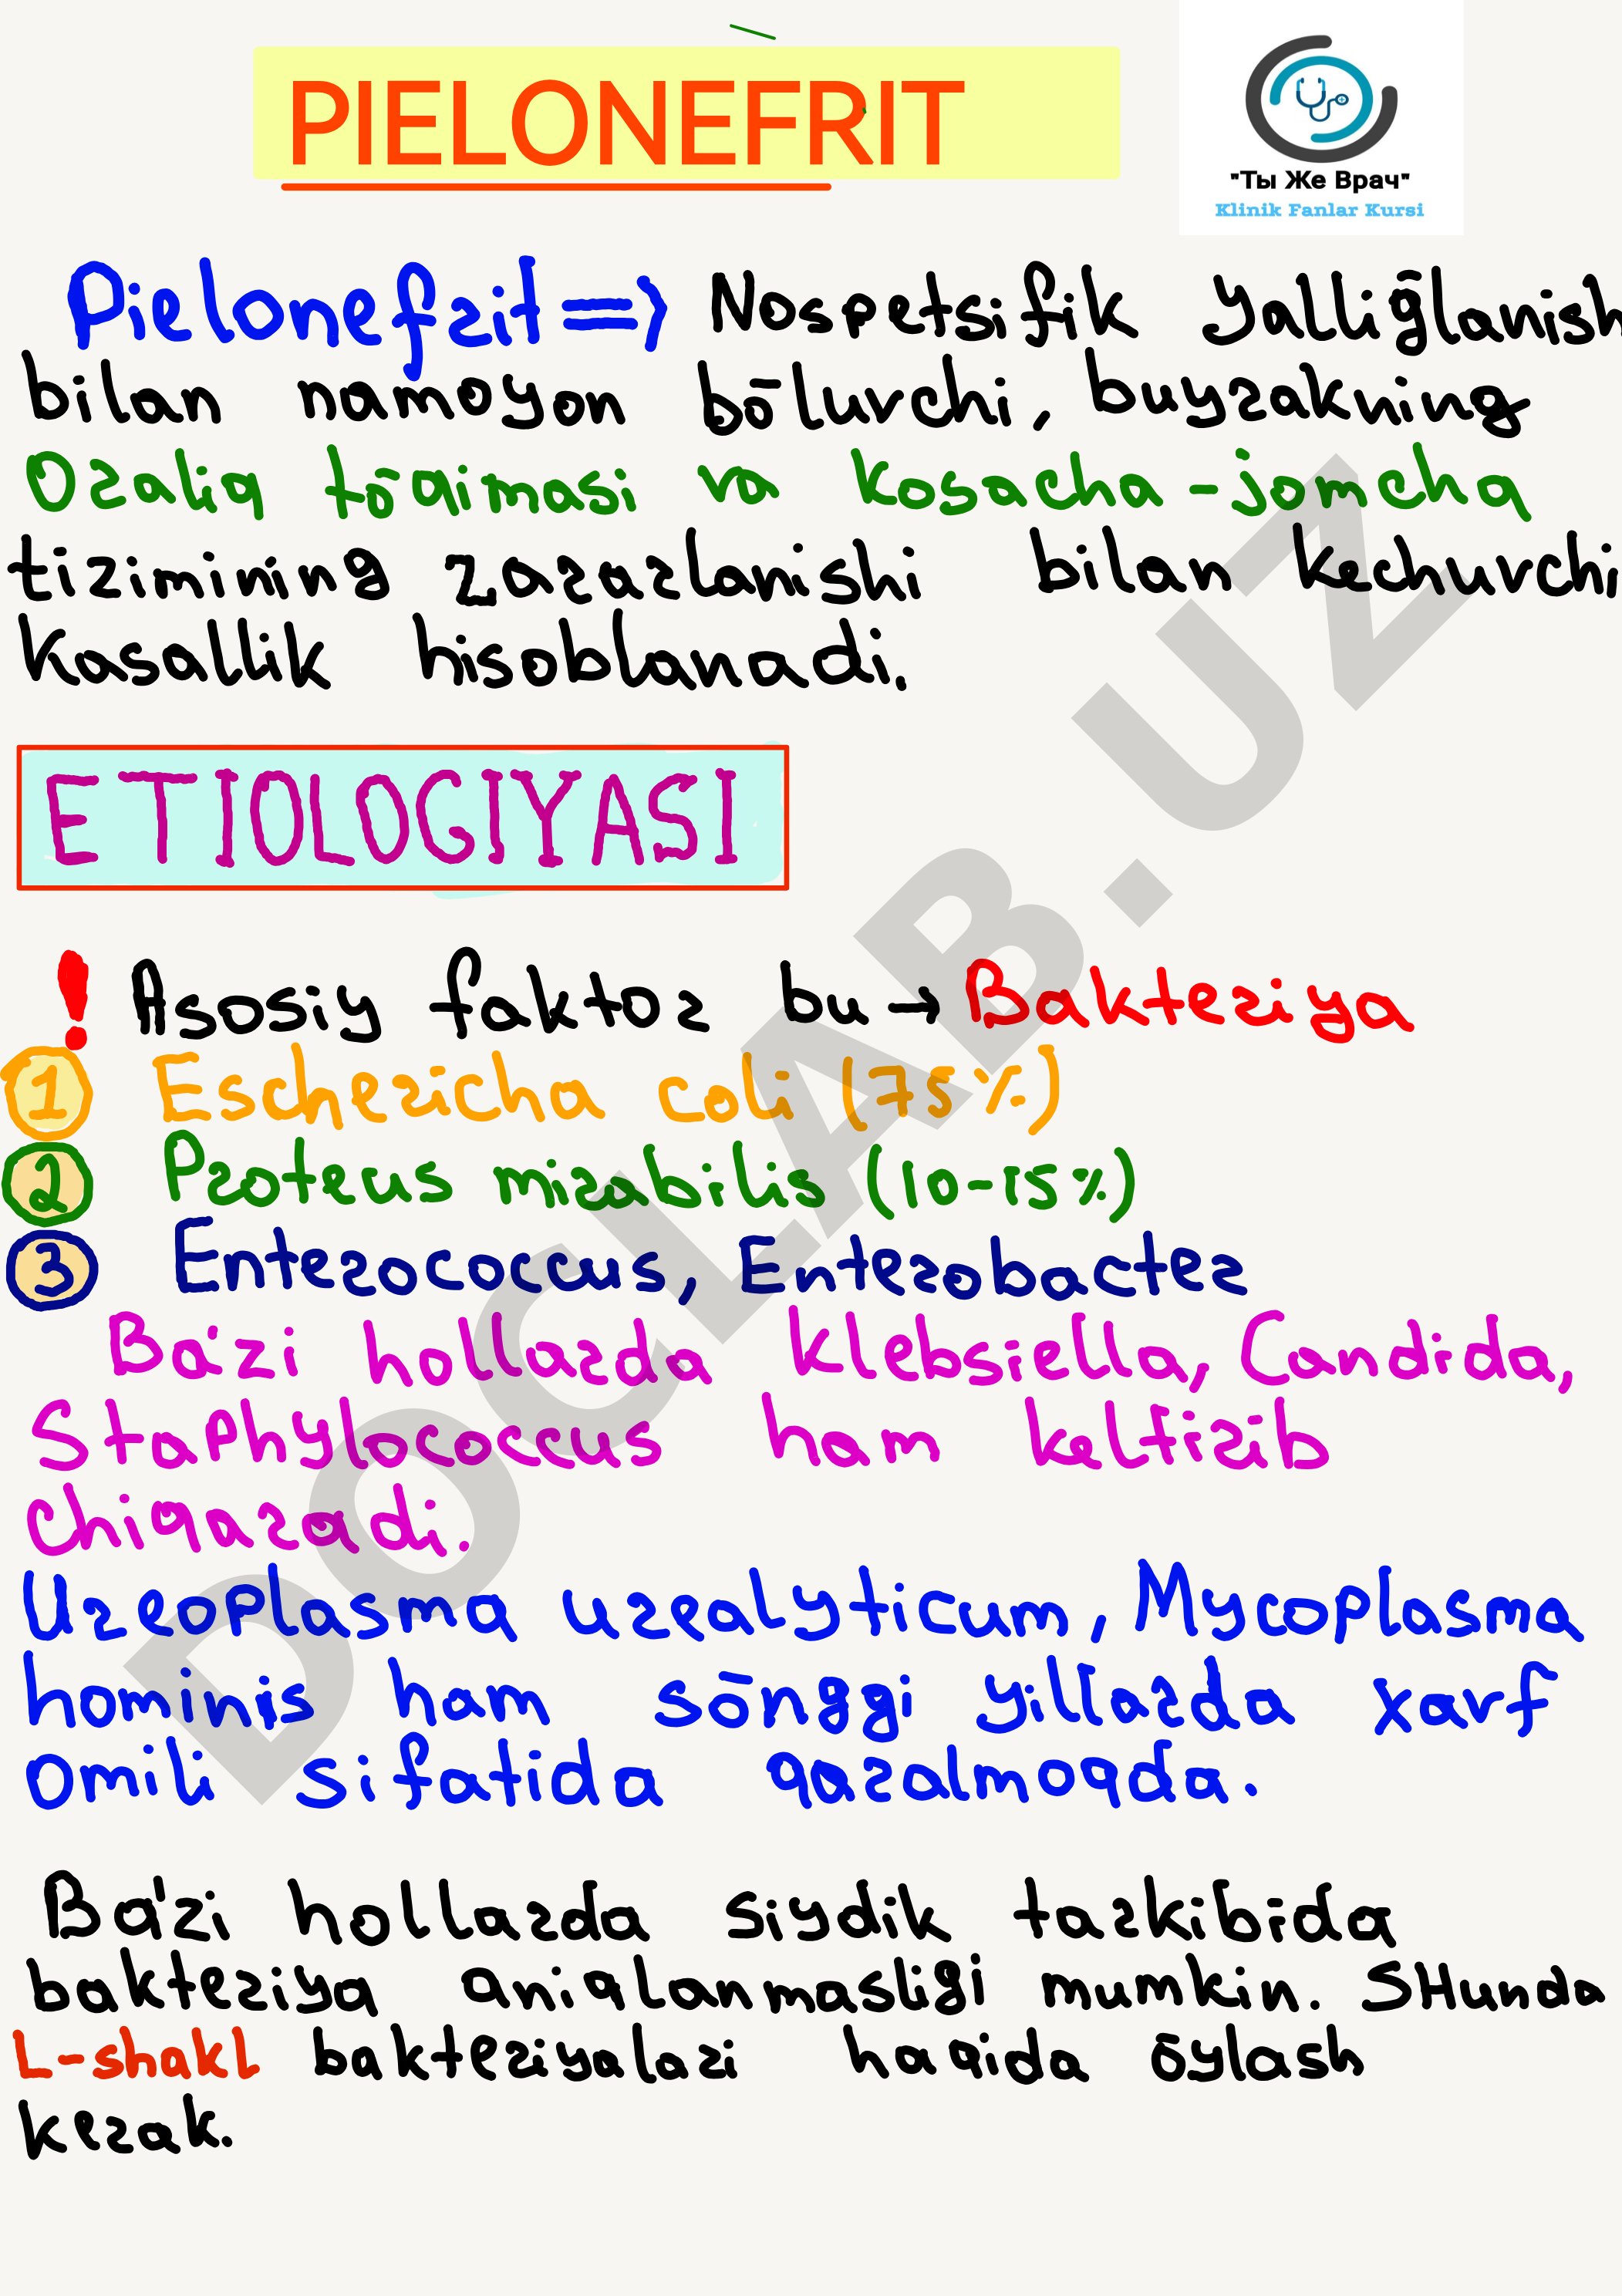 PIELONEFRIT
"Ты Же Врач"
Klinik Fanlar Kursi
Pielonefrit => Nospetsifik yallig̃lanish
bilan namoyon bōluvchi, buyrakning
Oraliq tōqimasi va kosacha-jomcha
tizimining zararlanishi bilan kechuvchi
kasallik hisoblanadi.
ETIOLOGIYASI
! Asosiy faktor bu → Bakteriya
1 Eschericha coli (75%)
2 Proteus mirabilis (10-15%)
3 Enterococcus, Enterobacter
Ba'zi hollarda Klebsiella, Candida,
Staphylococcus ham keltirib
chiqaradi.
Ureoplasma urealyticum, Mycoplasma
hominis ham sōnggi yillarda xavf
omili sifatida qaralmoqda.
Ba'zi hollarda siydik tarkibida
bakteriya aniqlanmasligi mumkin. SHunda
L-shakL bakteriyalari haqida ōylash
kerak.
DOCLAB.UZ